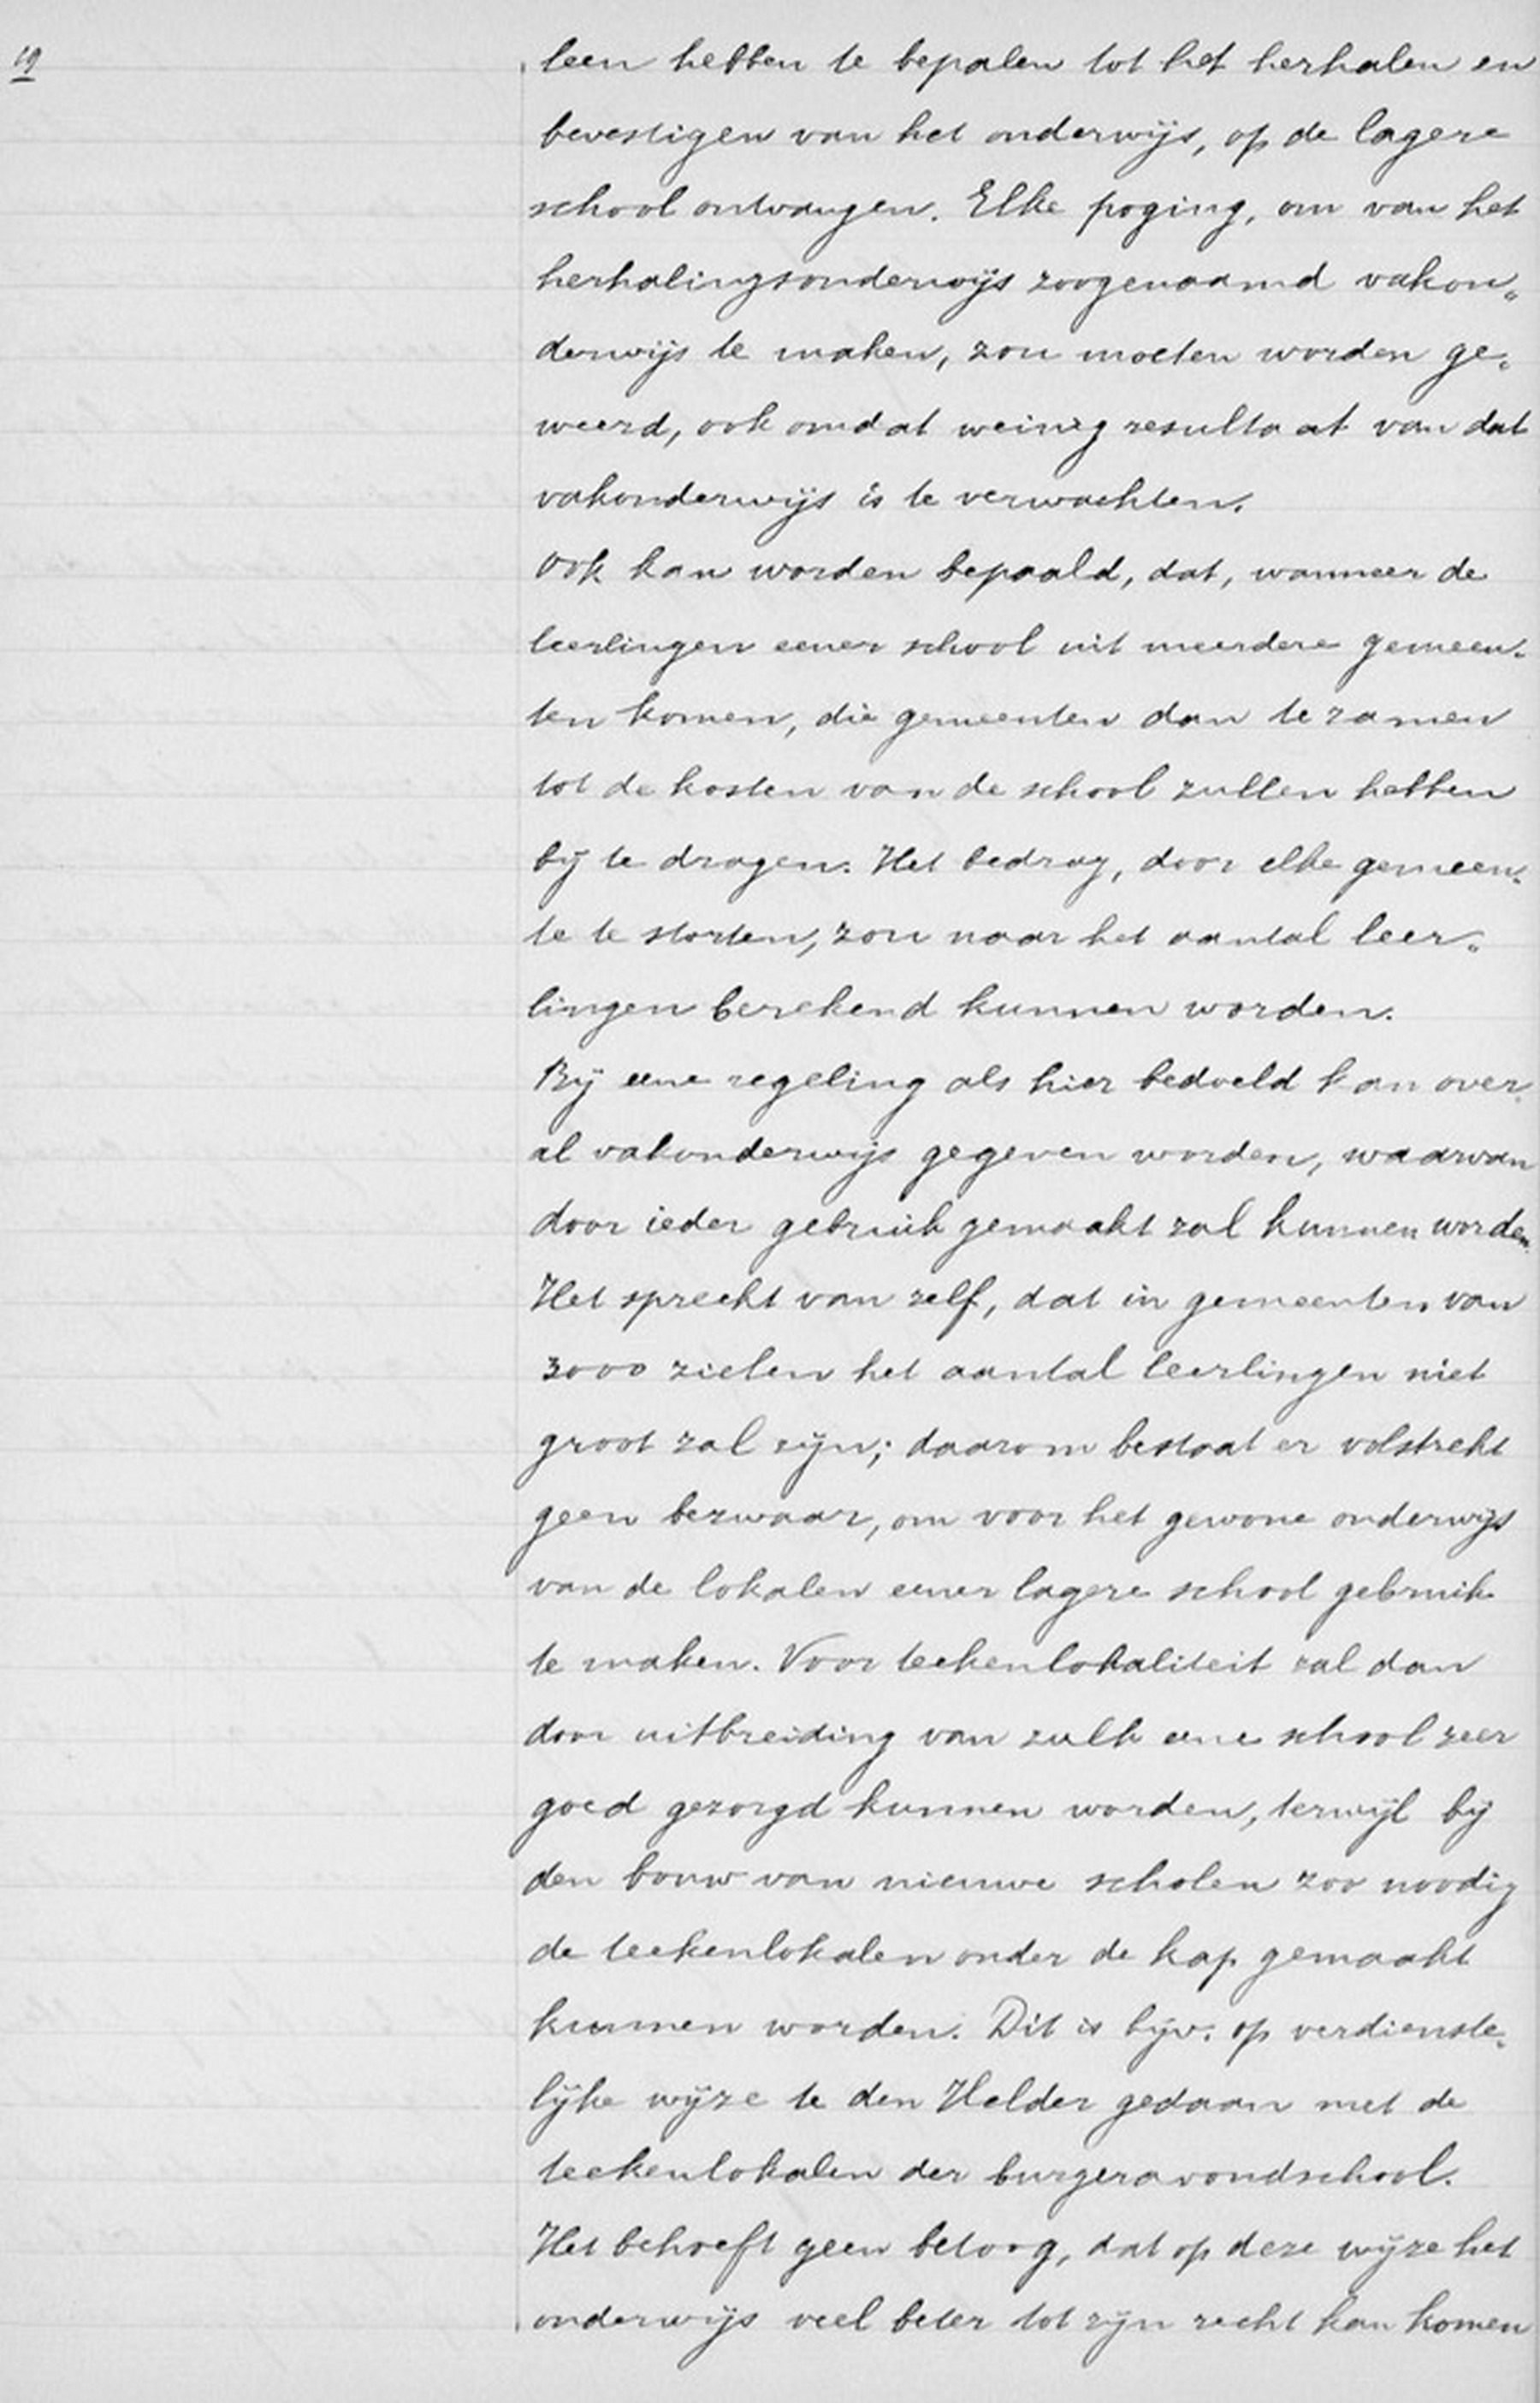 19
leen hebben te bepalen tot het herhalen en
bevestigen van het onderwijs, op de lagere
school ontvangen. Elke poging, om van het
herhalingsonderwijs zoogenaamd vakon„
derwijs te maken, zou moeten worden ge„
weerd, ook omdat weinig resultaat van dat
vakonderwijs is te verwachten.
Ook kan worden bepaald, dat, wanneer de
leerlingen eener school uit meerdere gemeen„
ten komen, die gemeenten dan te zamen
tot de kosten van de school zullen hebben
bij te dragen. Het bedrag, door elke gemeen„
te te storten, zou naar het aantal leer„
lingen berekend kunnen worden.
Bij eene regeling als hier bedoeld kan over„
al vakonderwijs gegeven worden, waarvan
door ieder gebruik gemaakt zal kunnen worden.
Het spreekt van zelf, dat in gemeenten van
3000 zielen het aantal leerlingen niet
groot zal zijn; daarom bestaat er volstrekt
geen bezwaar, om voor het gewone onderwijs
van de lokalen eener lagere school gebruik
te maken. Voor teekenlokaliteit zal dan
door uitbreiding van zulk eene school zeer
goed gezorgd kunnen worden, terwijl bij
den bouw van nieuwe scholen zoo noodig
de teekenlokalen onder de kap gemaakt
kunnen worden. Dit is bijv. op verdienste„
lijke wijze te den Helder gedaan met de
teekenlokalen der burgeravondschool.
Het behoeft geen betoog, dat op deze wijze het
onderwijs veel beter tot zijn recht kan komen